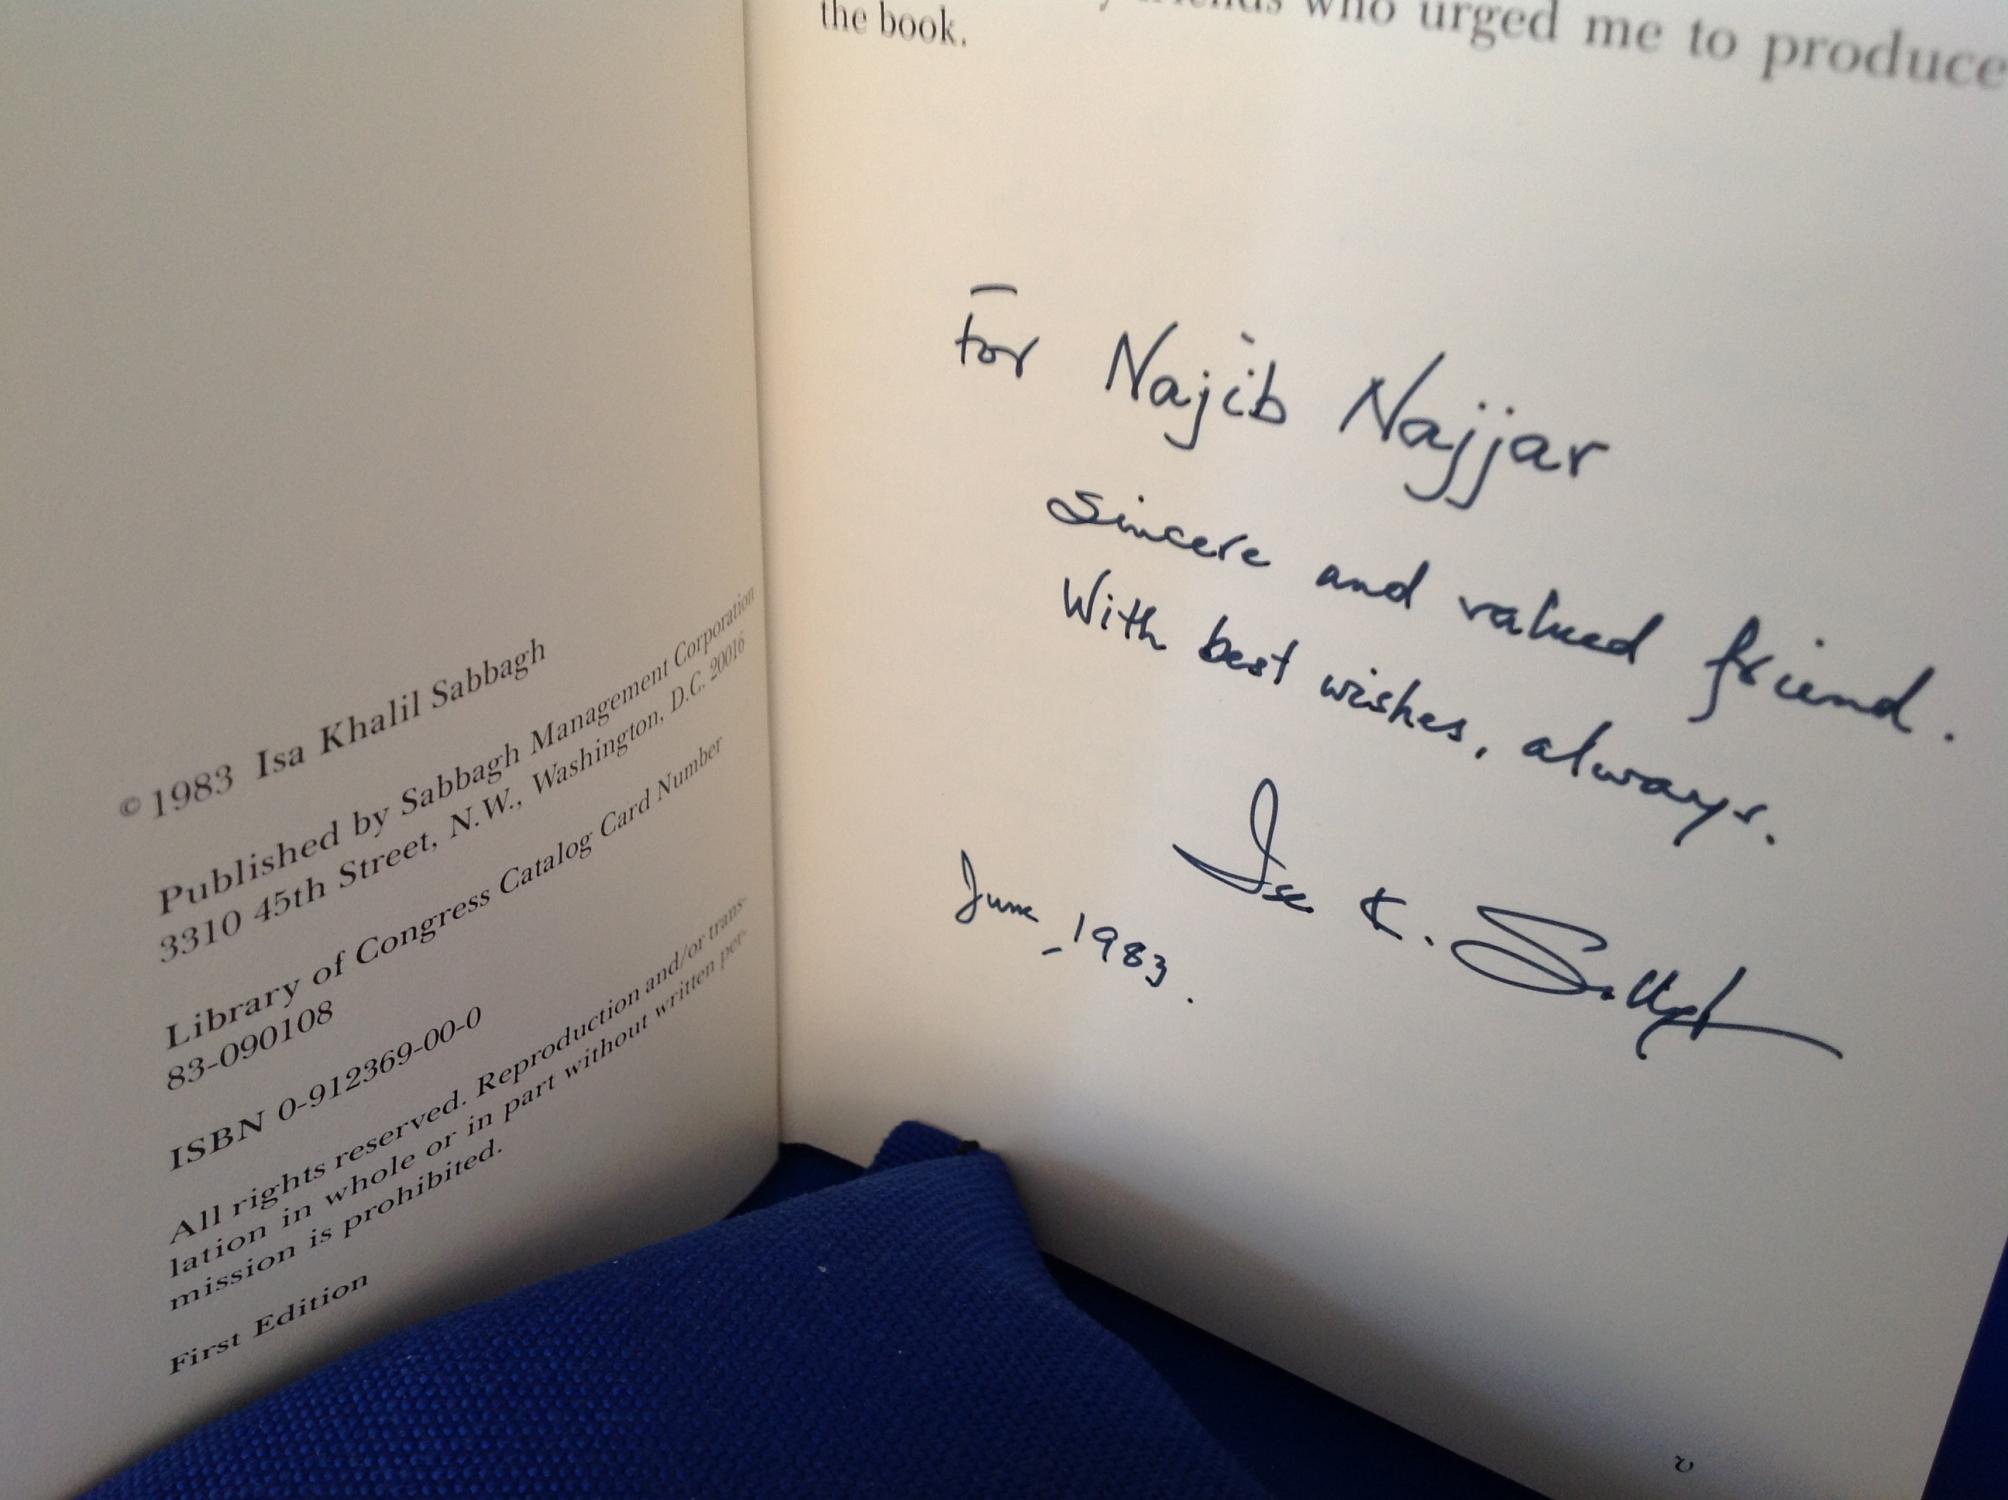 © 1983 Isa Khalil Sabbagh
Published by Sabbagh Management Corporation
3310 45th Street, N.W., Washington, D.C. 20016
Library of Congress Catalog Card Number
83-090108
ISBN 0-912369-00-0
All rights reserved. Reproduction and/or trans-
lation in whole or in part without written per-
mission is prohibited.
First Edition
friends who urged me to produce
the book.
For Najib Najjar
Sincere and valued friend.
With best wishes, always.
Isa K. Sabbagh
June, 1983.